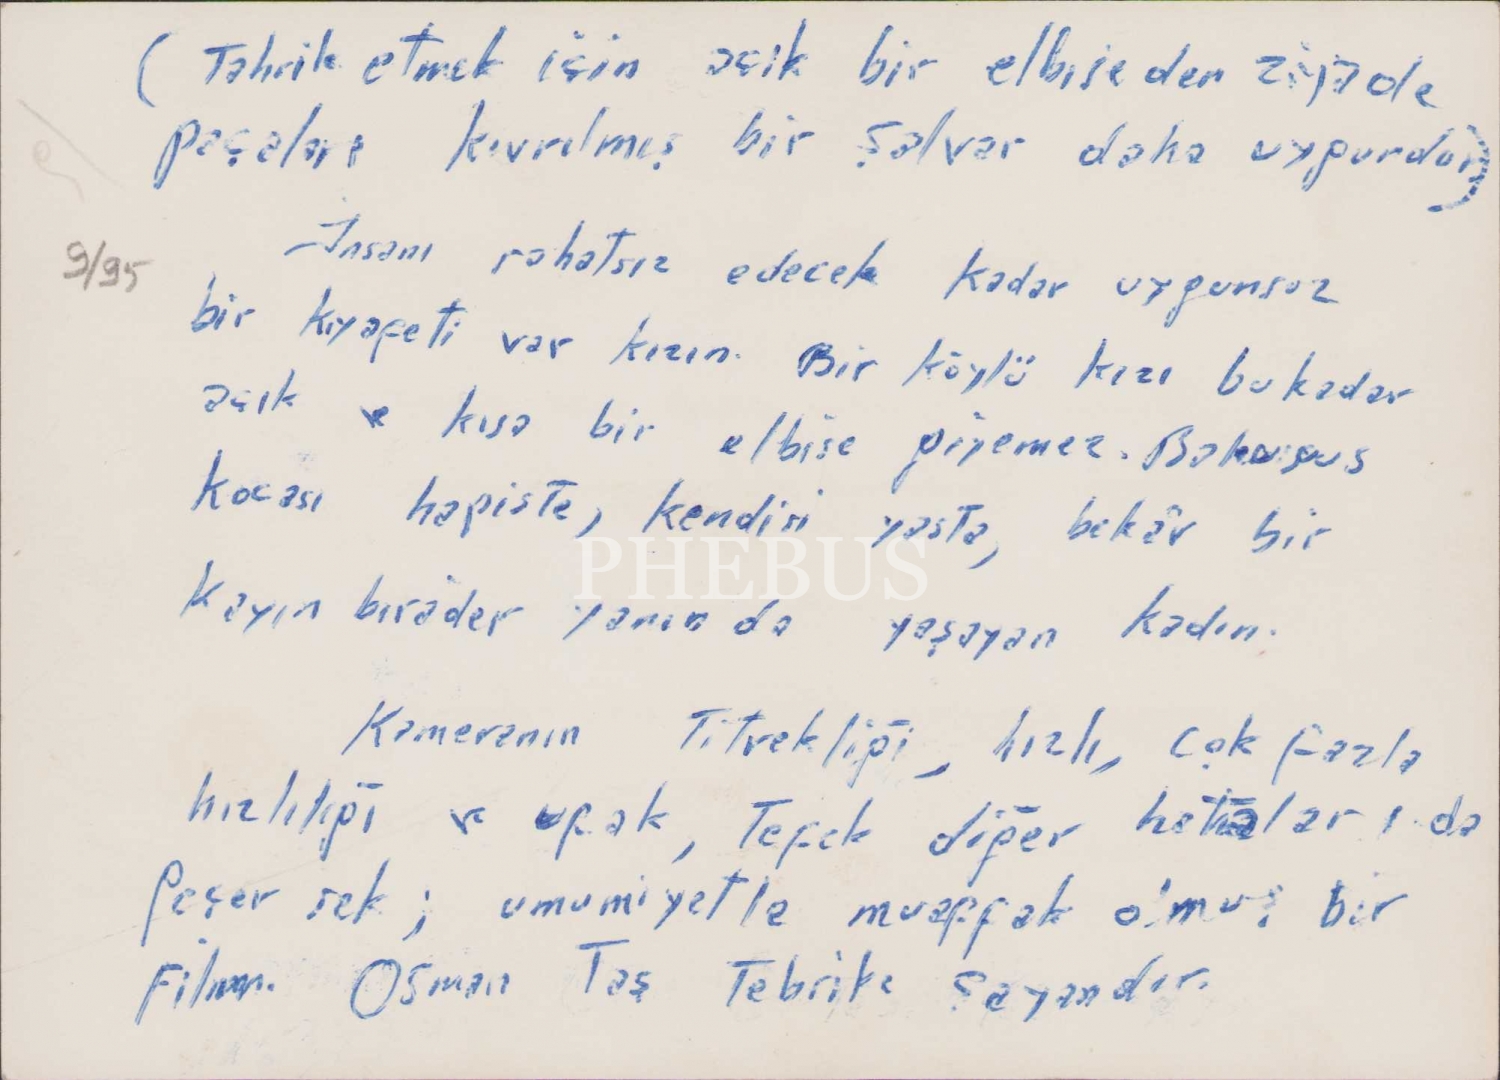 ( Tahrik etmek için açık bir elbiseden ziyade
paçaları kıvrılmış bir şalvar daha uygundur)
9/95
İnsanı rahatsız edecek kadar uygunsuz
bir kıyafeti var kızın. Bir köylü kızı bukadar
açık ve kısa bir elbise giyemez. Bahusus
kocası hapiste, kendisi yasta, bekâr bir
kayın bırâder yanında yaşayan kadın.
PHEBUS
Kameranın Titrekliği, hızlı, çok fazla
hızlılığı ve ufak, Tefek diğer hataları da
geçer sek; umumiyetle muaffak olmuş bir
Film. Osman Taş Tebrike şayandır.